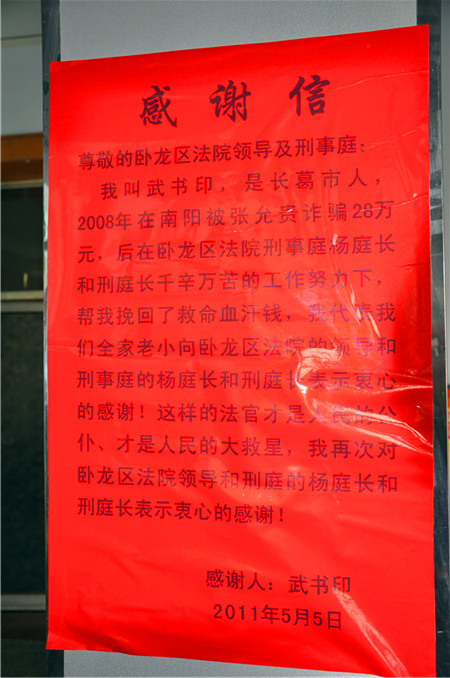 感谢信
尊敬的卧龙区法院领导及刑事庭：
我叫武书印，是长葛市人，
2008年在南阳被张允贵诈骗28万
元，后在卧龙区法院刑事庭杨庭长
和刑庭长千辛万苦的工作努力下，
帮我挽回了救命血汗钱，我代表我
们全家老小向卧龙区法院的领导和
刑事庭的杨庭长和刑庭长表示衷心
的感谢！这样的法官才是人民的公
仆、才是人民的大救星，我再次对
卧龙区法院领导和刑庭的杨庭长和
刑庭长表示衷心的感谢！
感谢人：武书印
2011年5月5日